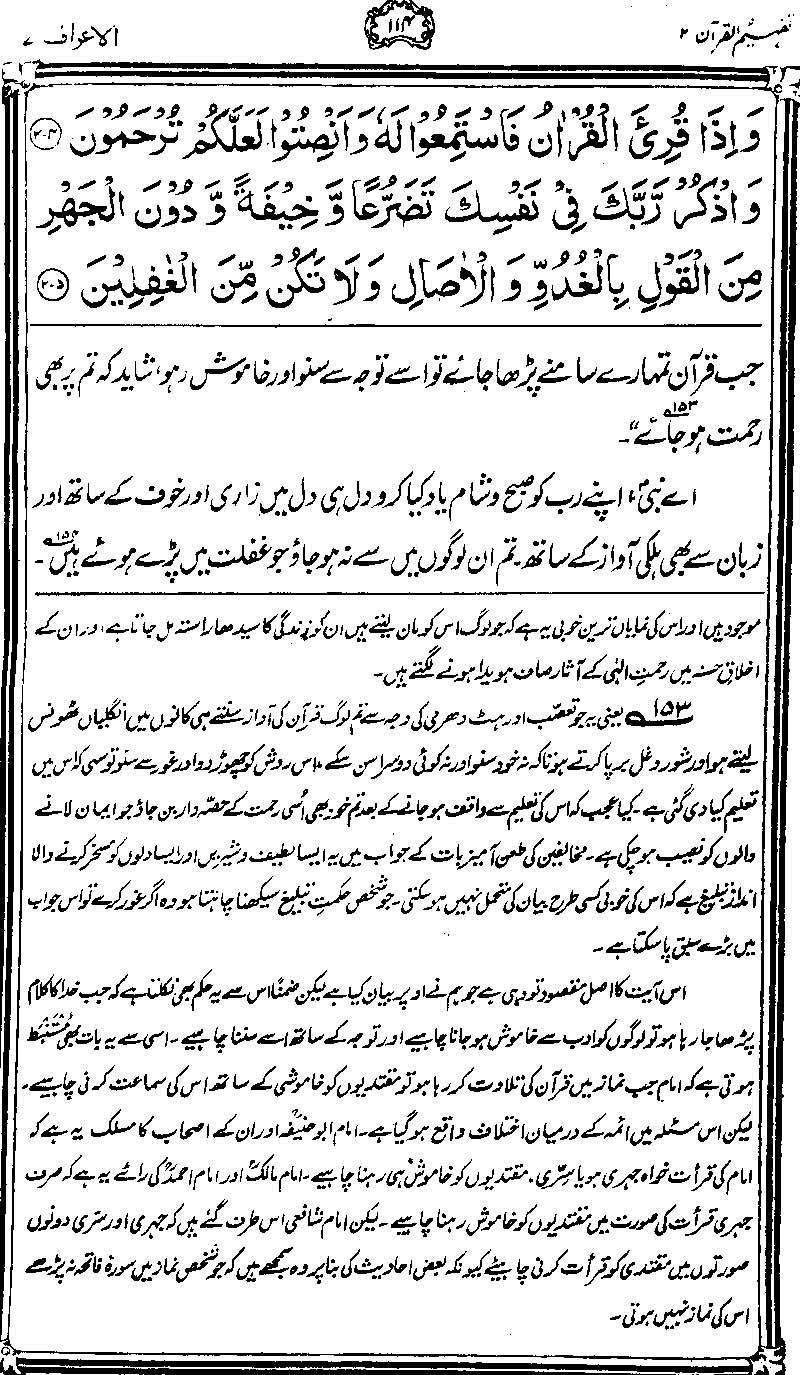 تفہیم القرآن ۲
۱۱۴
الاعراف ۷
وَاِذَا قُرِئَ الْقُرْاٰنُ فَاسْتَمِعُوْا لَهٗ وَاَنْصِتُوْا لَعَلَّكُمْ تُرْحَمُوْنَ ۲۰۴
وَاذْكُرْ رَّبَّكَ فِيْ نَفْسِكَ تَضَرُّعًا وَّ خِيْفَةً وَّ دُوْنَ الْجَهْرِ
مِنَ الْقَوْلِ بِالْغُدُوِّ وَ الْاٰصَالِ وَلَا تَكُنْ مِّنَ الْغٰفِلِيْنَ ۲۰۵
جب قرآن تمہارے سامنے پڑھا جائے تو اسے توجہ سے سنو اور خاموش رہو، شاید کہ تم پر بھی
رحمت ہو جائے"۔ ۱۵۳
اے نبیؐ، اپنے رب کو صبح و شام یاد کیا کرو دل ہی دل میں زاری اور خوف کے ساتھ اور
زبان سے بھی ہلکی آواز کے ساتھ۔ تم ان لوگوں میں سے نہ ہو جاؤ جو غفلت میں پڑے ہوئے ہیں ۱۵۴۔
موجود ہیں اور اس کی نمایاں ترین خوبی یہ ہے کہ جو لوگ اس کو مان لیتے ہیں ان کو زندگی کا سیدھا راستہ مل جاتا ہے اور ان کے
اخلاقِ حسنہ میں رحمتِ الٰہی کے آثار صاف ہویدا ہونے لگتے ہیں۔
۱۵۳ یعنی یہ جو تعصّب اور ہٹ دھرمی کی وجہ سے تم لوگ قرآن کی آواز سنتے ہی کانوں میں انگلیاں ٹھونس
لیتے ہو اور شور و غل برپا کرتے ہو تاکہ نہ خود سنو اور نہ کوئی دوسرا سن سکے، اس روش کو چھوڑ دو اور غور سے سنو تو سہی کہ اس میں
تعلیم کیا دی گئی ہے۔ کیا عجب کہ اس کی تعلیم سے واقف ہو جانے کے بعد تم خود بھی اُسی رحمت کے حصّہ دار بن جاؤ جو ایمان لانے
والوں کو نصیب ہو چکی ہے۔ مخالفین کی طعن آمیز بات کے جواب میں یہ ایسا لطیف و شیریں اور ایسا دلوں کو مسخر کرنے والا
اندازِ تبلیغ ہے کہ اس کی خوبی کسی طرح بیان کی متحمل نہیں ہو سکتی۔ جو شخص حکمتِ تبلیغ سیکھنا چاہتا ہو وہ اگر غور کرے تو اس جواب
میں بڑے سبق پا سکتا ہے۔
اس آیت کا اصل مقصود تو وہی ہے جو ہم نے اوپر بیان کیا ہے لیکن ضمناً اس سے یہ حکم بھی نکلتا ہے کہ جب خدا کا کلام
پڑھا جا رہا ہو تو لوگوں کو ادب سے خاموش ہو جانا چاہیے اور توجہ کے ساتھ اسے سننا چاہیے۔ اسی سے یہ بات بھی مُستنبَط
ہوتی ہے کہ امام جب نماز میں قرآن کی تلاوت کر رہا ہو تو مقتدیوں کو خاموشی کے ساتھ اس کی سماعت کرنی چاہیے۔
لیکن اس مسئلہ میں ائمہ کے درمیان اختلاف واقع ہو گیا ہے۔ امام ابو حنیفہؒ اور ان کے اصحاب کا مسلک یہ ہے کہ
امام کی قرأت خواہ جہری ہو یا سرّی، مقتدیوں کو خاموش ہی رہنا چاہیے۔ امام مالکؒ اور امام احمدؒ کی رائے یہ ہے کہ صرف
جہری قرأت کی صورت میں مقتدیوں کو خاموش رہنا چاہیے۔ لیکن امام شافعی اس طرف گئے ہیں کہ جہری اور سرّی دونوں
صورتوں میں مقتدی کو قرأت کرنی چاہیئے کیونکہ بعض احادیث کی بنا پر وہ سمجھتے ہیں کہ جو شخص نماز میں سورۂ فاتحہ نہ پڑھے
اس کی نماز نہیں ہوتی۔